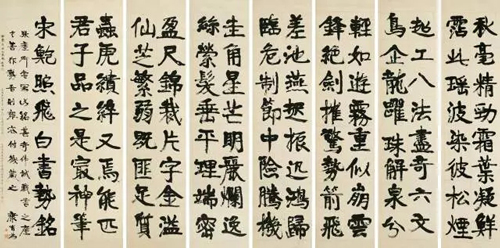 秋毫精勁霜葉凝鮮
霑此瑤波染彼松煙
超工八法盡奇六文
鳥企龍躍珠解泉分
輕如遊霧重似崩雲
鋒絕劍摧驚勢箭飛
差池燕起振迅鴻歸
臨危制節中險騰機
圭角星芒明麗爛逸
絲縈髮垂平理端密
盈尺錦裁片字金溢
仙芝繁弱既匪足質
蟲虎又焉能匹
君子品之是最神筆
宋鮑照飛白書勢銘
康有為